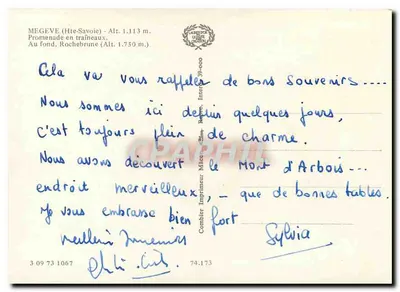 MEGEVE (Hte-Savoie) - Alt. 1.113 m.
Promenade en traîneaux.
Au fond, Rochebrune (Alt. 1.750 m.)
Cela va vous rappeler de bons souvenirs....
Nous sommes ici depuis quelques jours,
c'est toujours plein de charme.
Nous avons découvert le Mont d'Arbois...
endroit merveilleux, _ que de bonnes tables.
Je vous embrasse bien fort
Sylvia
3 09 73 1067
74.173
Combier Imprimeur Mâcon